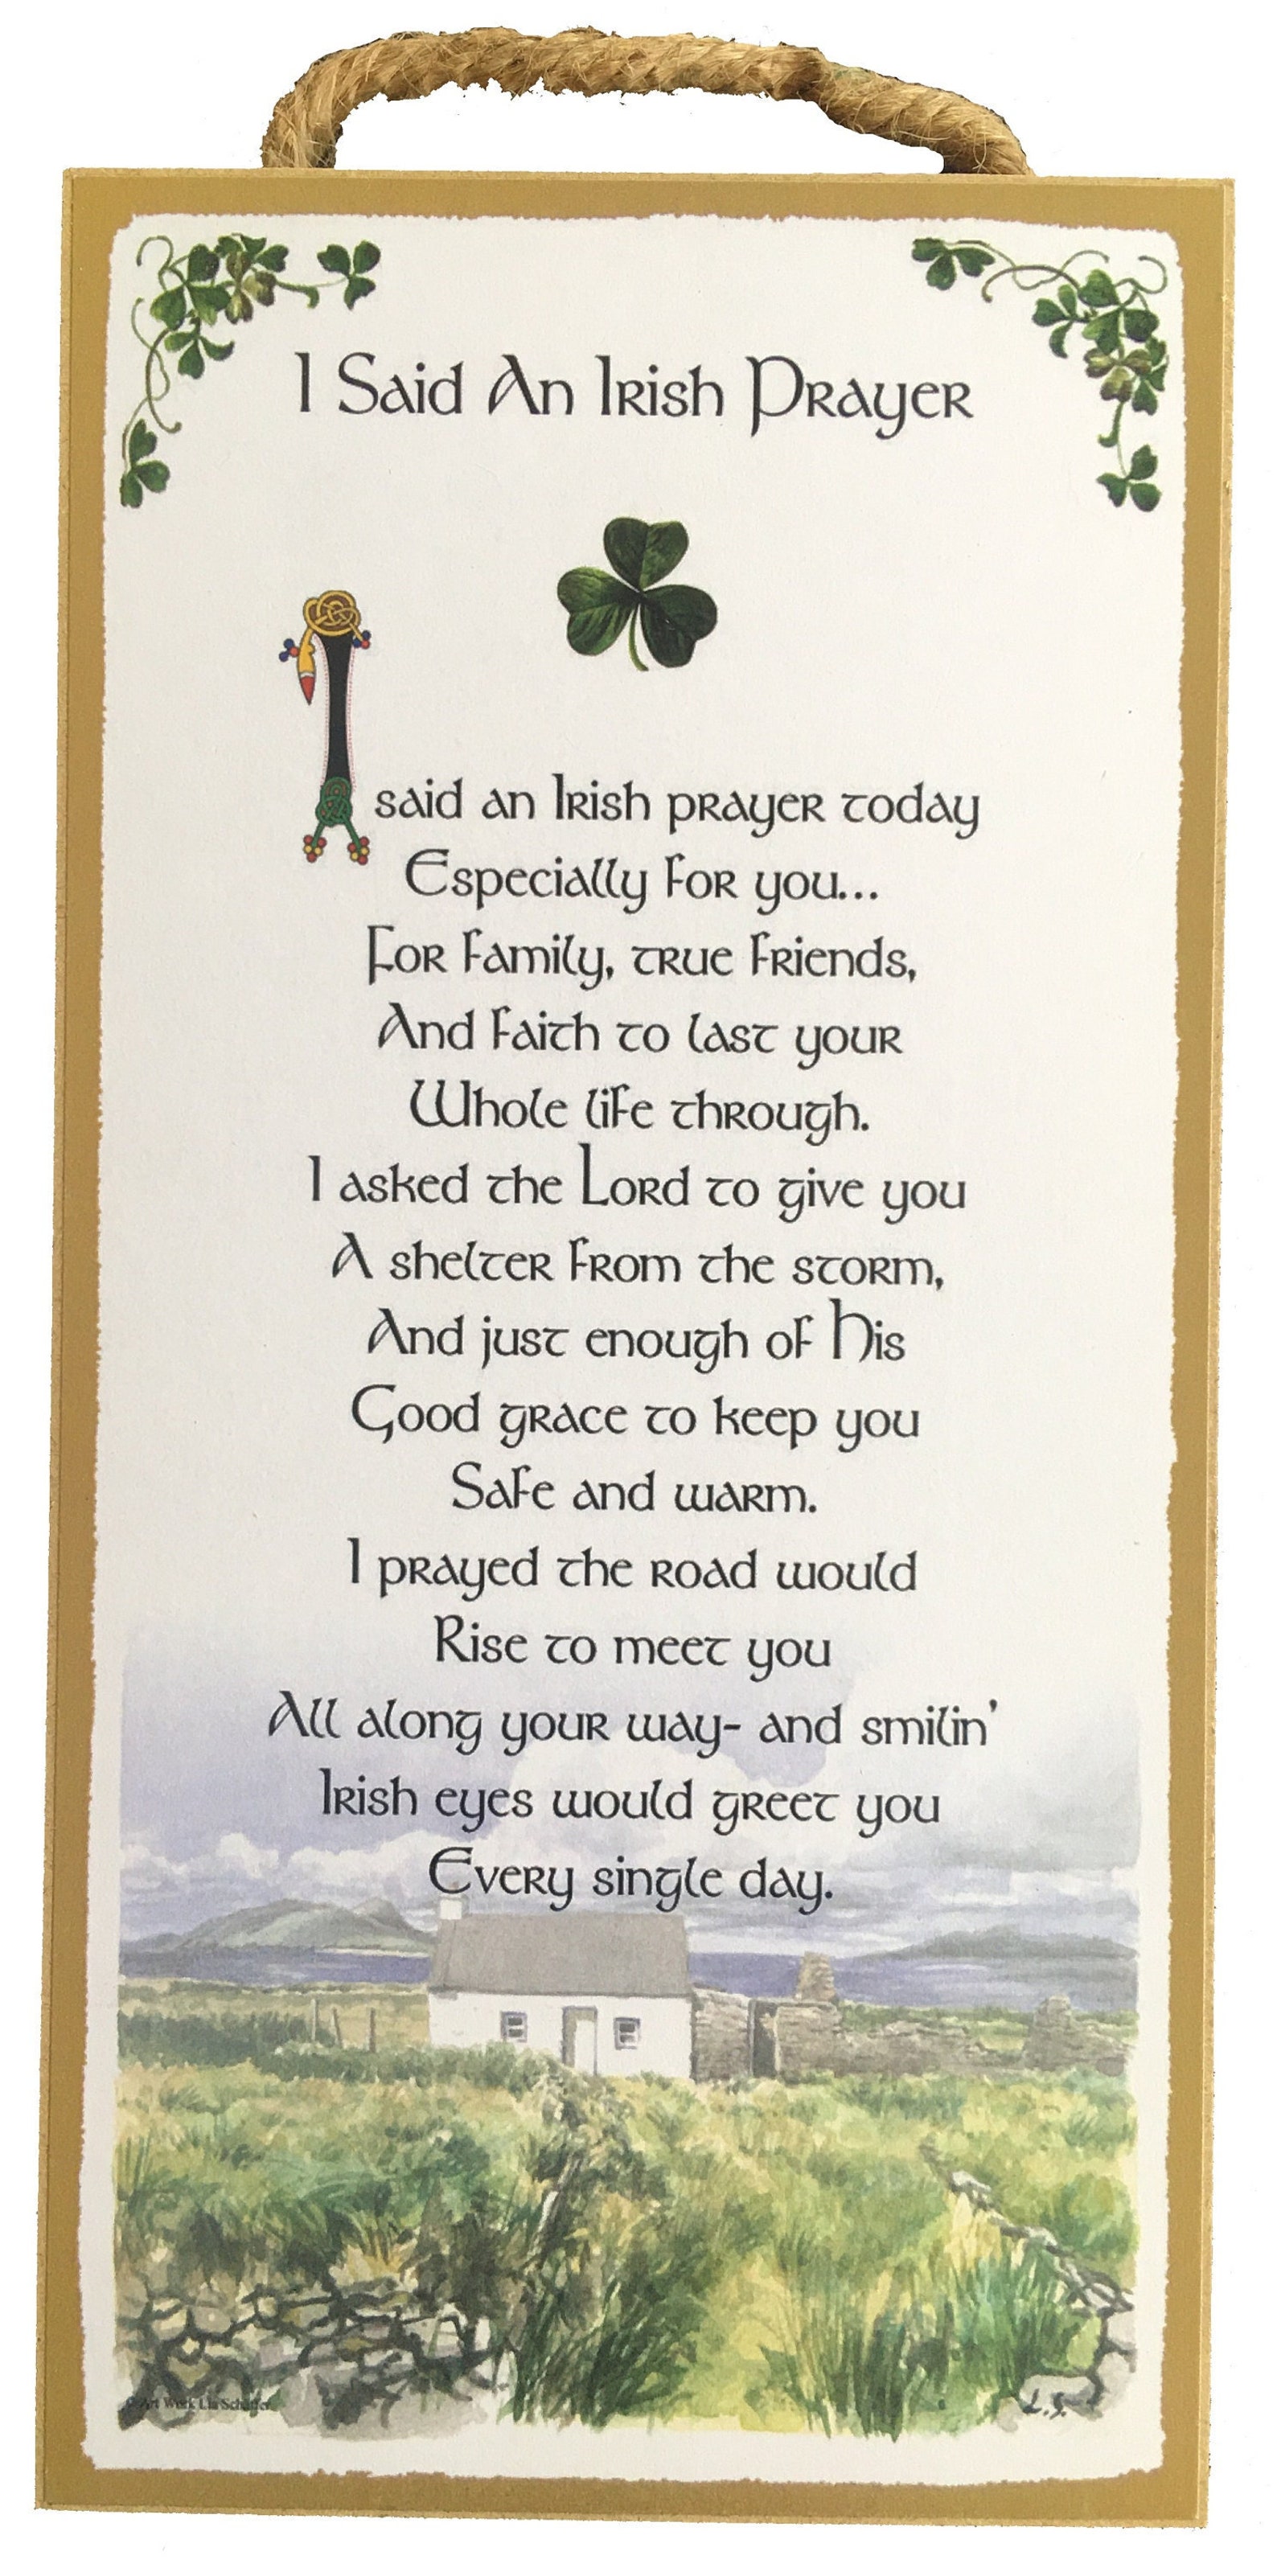 I Said An Irish Prayer
I said an Irish prayer today
Especially for you...
For family, true friends,
And faith to last your
Whole life through.
I asked the Lord to give you
A shelter from the storm,
And just enough of His
Good grace to keep you
Safe and warm.
I prayed the road would
Rise to meet you
All along your way- and smilin'
Irish eyes would greet you
Every single day.
© Art Work Lia Schaffer
L.S.